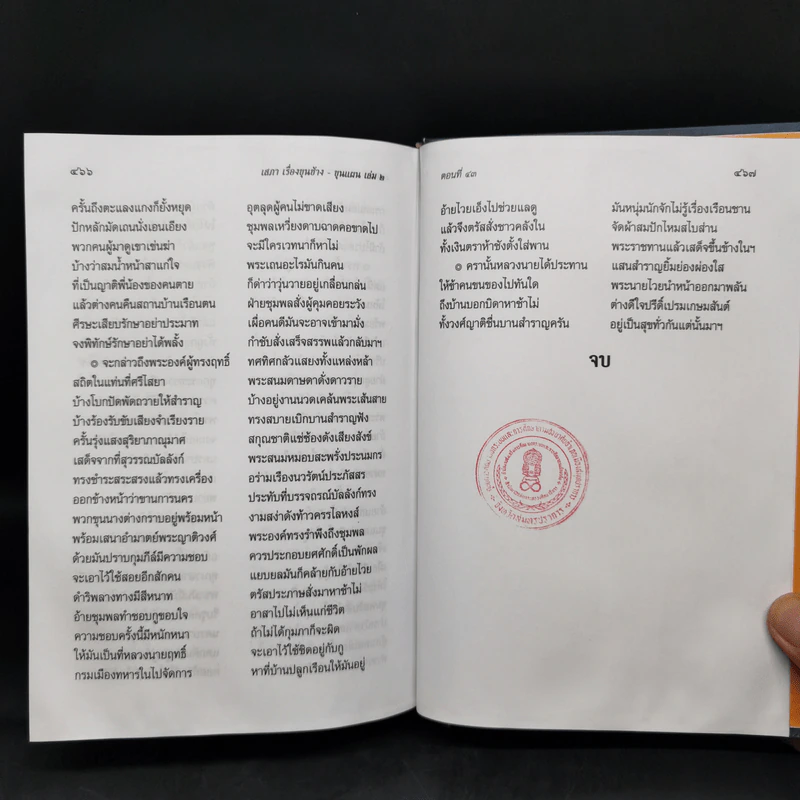 ๔๖๖
เสภา เรื่องขุนช้าง - ขุนแผน เล่ม ๒
ครั้นถึงตะแลงแกงก็ยั้งหยุด อุตลุดผู้คนไม่ขาดเสียง
ปักหลักมัดเถนนั่งเอนเอียง ชุมพลเหวี่ยงดาบฉาดคอขาดไป
พวกคนผู้มาดูเขาเข่นฆ่า จะมีใครเวทนาก็หาไม่
บ้างว่าสมน้ำหน้าสาแก่ใจ พระเถนอะไรมันกินคน
ที่เป็นญาติพี่น้องของคนตาย ก็ด่าว่าวุ่นวายอยู่เกลื่อนกล่น
แล้วต่างคนคืนสถานบ้านเรือนตน ฝ่ายชุมพลสั่งผู้คุมคอยระวัง
ศีรษะเสียบรักษาอย่าประมาท เผื่อคนดีมันจะอาจเข้ามามั่ง
จงพิทักษ์รักษาอย่าได้พลั้ง กำชับสั่งเสร็จสรรพแล้วกลับมาฯ
๏ จะกล่าวถึงพระองค์ผู้ทรงฤทธิ์ ทศทิศกลัวแสยงทั้งแหล่งหล้า
สถิตในแท่นที่ศรีไสยา พระสนมดาษดาดั่งดาวราย
บ้างโบกปัดพัดถวายให้สำราญ บ้างอยู่งานนวดเคล้นพระเส้นสาย
บ้างร้องรับขับเสียงจำเรียงราย ทรงสบายเบิกบานสำราญฟัง
ครั้นรุ่งแสงสุริยาภาณุมาศ สกุณชาติแซ่ซ้องดังเสียงสังข์
เสด็จจากที่สุวรรณบัลลังก์ พระสนมหมอบสะพรั่งประนมกร
ทรงชำระสระสรงแล้วทรงเครื่อง อร่ามเรืองนวรัตน์ประภัสสร
ออกข้างหน้าว่าขานการนคร ประทับที่บรรจถรณ์บัลลังก์ทรง
พวกขุนนางต่างกราบอยู่พร้อมหน้า งามสง่าดังท้าวครรไลหงส์
พร้อมเสนาอำมาตย์พระญาติวงศ์ พระองค์ทรงรำพึงถึงชุมพล
ด้วยมันปราบกุมภีล์มีความชอบ ควรประกอบยศศักดิ์เป็นพักผล
จะเอาไว้ใช้สอยอีกสักคน แยบยลมันก็คล้ายกับอ้ายไวย
ดำริพลางทางมีสีหนาท ตรัสประภาษสั่งมาหาช้าไม่
อ้ายชุมพลทำชอบกูขอบใจ อาสาไปไม่เห็นแก่ชีวิต
ความชอบครั้งนี้มีหนักหนา ถ้าไม่ได้กุมภาก็จะผิด
ให้มันเป็นที่หลวงนายฤทธิ์ จะเอาไว้ใช้ชิดอยู่กับกู
กรมเมืองทหารในไปจัดการ หาที่บ้านปลูกเรือนให้มันอยู่
ตอนที่ ๔๓
๔๖๗
อ้ายไวยเอ็งไปช่วยแลดู มันหนุ่มนักจักไม่รู้เรื่องเรือนชาน
แล้วจึงตรัสสั่งชาวคลังใน จัดผ้าสมปักไหมสไบส่าน
ทั้งเงินตราห้าชั่งตั้งใส่พาน พระราชทานแล้วเสด็จขึ้นข้างในฯ
๏ ครานั้นหลวงนายได้ประทาน แสนสำราญยิ้มย่องผ่องใส
ให้ข้าคนขนของไปทันใด พระนายไวยนำหน้าออกมาพลัน
ถึงบ้านบอกบิดาหาช้าไม่ ต่างดีใจปรีดิ์เปรมเกษมสันต์
ทั้งวงศ์ญาติชื่นบานสำราญครัน อยู่เป็นสุขทั่วกันแต่นั้นมาฯ
จบ